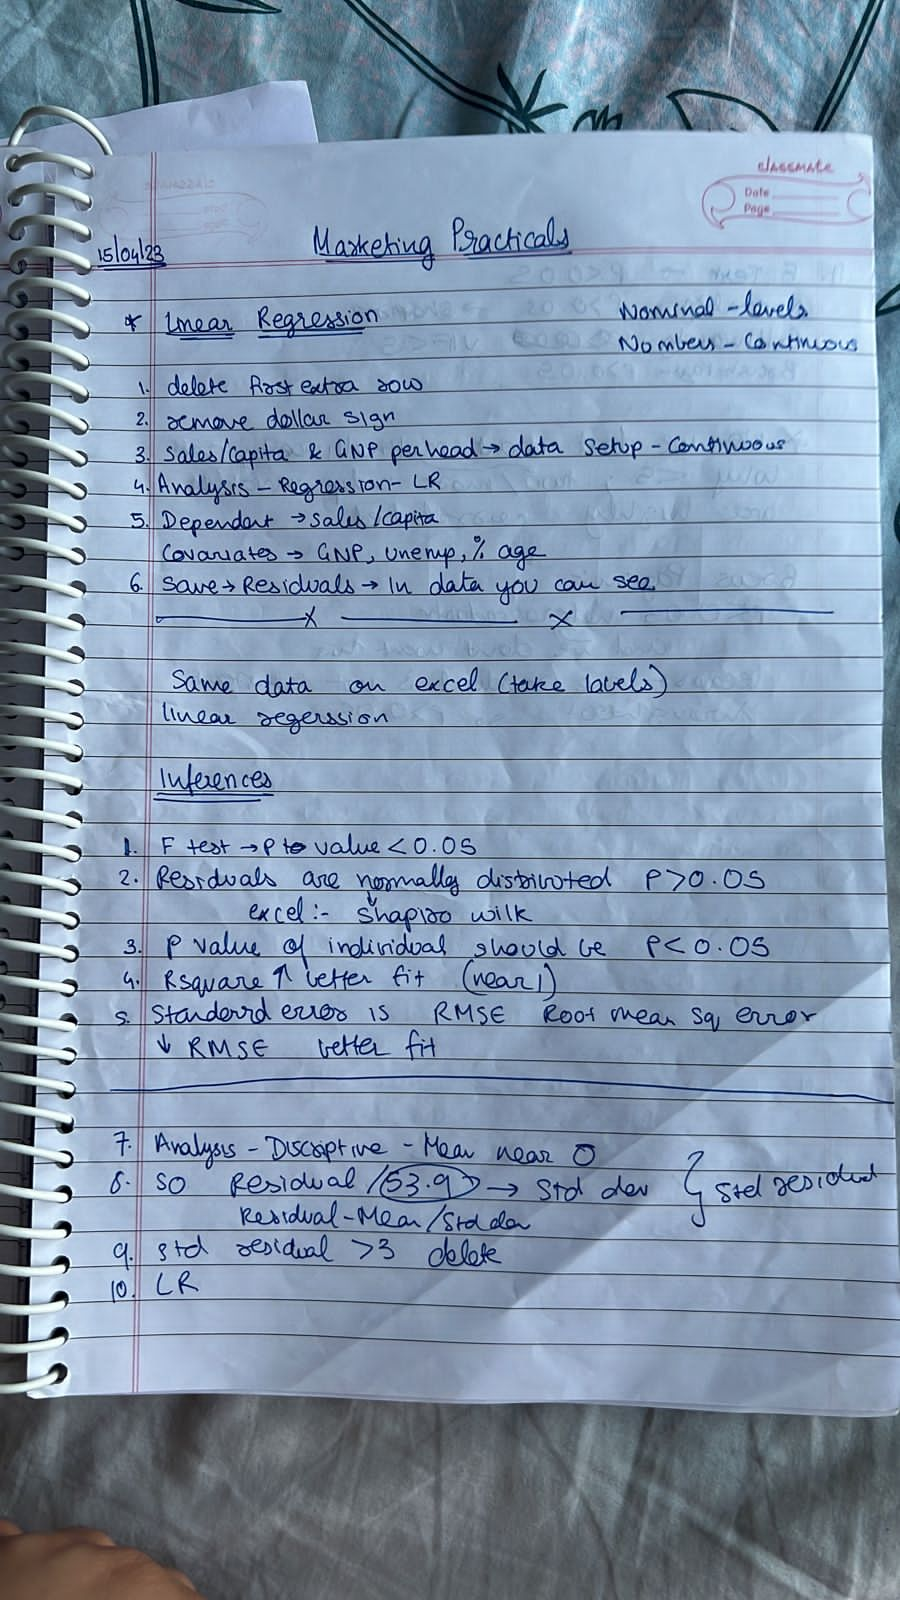 classmate
Date
Page
15/04/23
Marketing Practicals
* Linear Regression
Nominal - levels
Numbers - Continuous
1. delete first extra row
2. remove dollar sign
3. Sales/Capita & GNP perhead → data Setup - Continuous
4. Analysis - Regression - LR
5. Dependent → Sales/Capita
Covariates → GNP, Unemp, % age
6. Save → Residuals → In data you can see
Same data on excel (take labels)
linear regerssion
Inferences
1. F test → P value < 0.05
2. Residuals are normally distributed P > 0.05
excel :- Shapiro wilk
3. P value of individual should be P < 0.05
4. Rsquare ↑ better fit (near 1)
5. Standerrd error is RMSE Root mean sq error
↓ RMSE better fit
7. Analysis - Discriptive - Mean near 0
8. SO Residual / 53.9 → Std dev } Std residual
Residual - Mean / Std dev
9. Std residual > 3 delete
10. LR